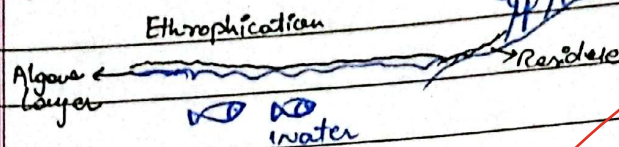 Ethrophication
Algae
layer
Residue
water